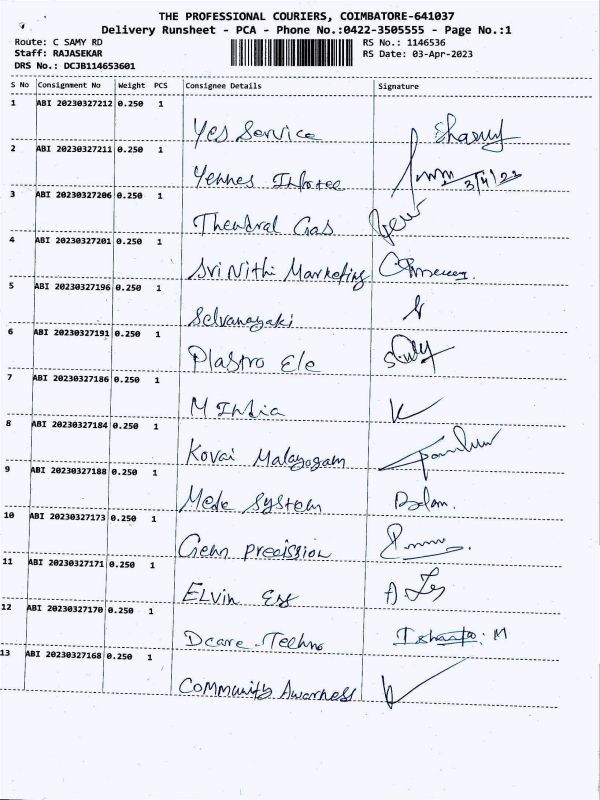 THE PROFESSIONAL COURIERS, COIMBATORE-641037
Delivery Runsheet - PCA - Phone No.:0422-3505555 - Page No.:1
Route: C SAMY RD RS No.: 1146536
Staff: RAJASEKAR RS Date: 03-Apr-2023
DRS No.: DCJB114653601
S No Consignment No Weight PCS Consignee Details Signature
1 ABI 20230327212 0.250 1
Yes Service
2 ABI 20230327211 0.250 1
Yennes Infotec 3/4/23
3 ABI 20230327206 0.250 1
Thendral Gas
4 ABI 20230327201 0.250 1
Sri Nithi Marketing
5 ABI 20230327196 0.250 1
Selvanayaki
6 ABI 20230327191 0.250 1
Plastro Ele
7 ABI 20230327186 0.250 1
M India
8 ABI 20230327184 0.250 1
Kovai Malayogam
9 ABI 20230327188 0.250 1
Mede System
10 ABI 20230327173 0.250 1
Precission
11 ABI 20230327171 0.250 1
ELvin
12 ABI 20230327170 0.250 1
Dcare Techno
13 ABI 20230327168 0.250 1
Community Awarness